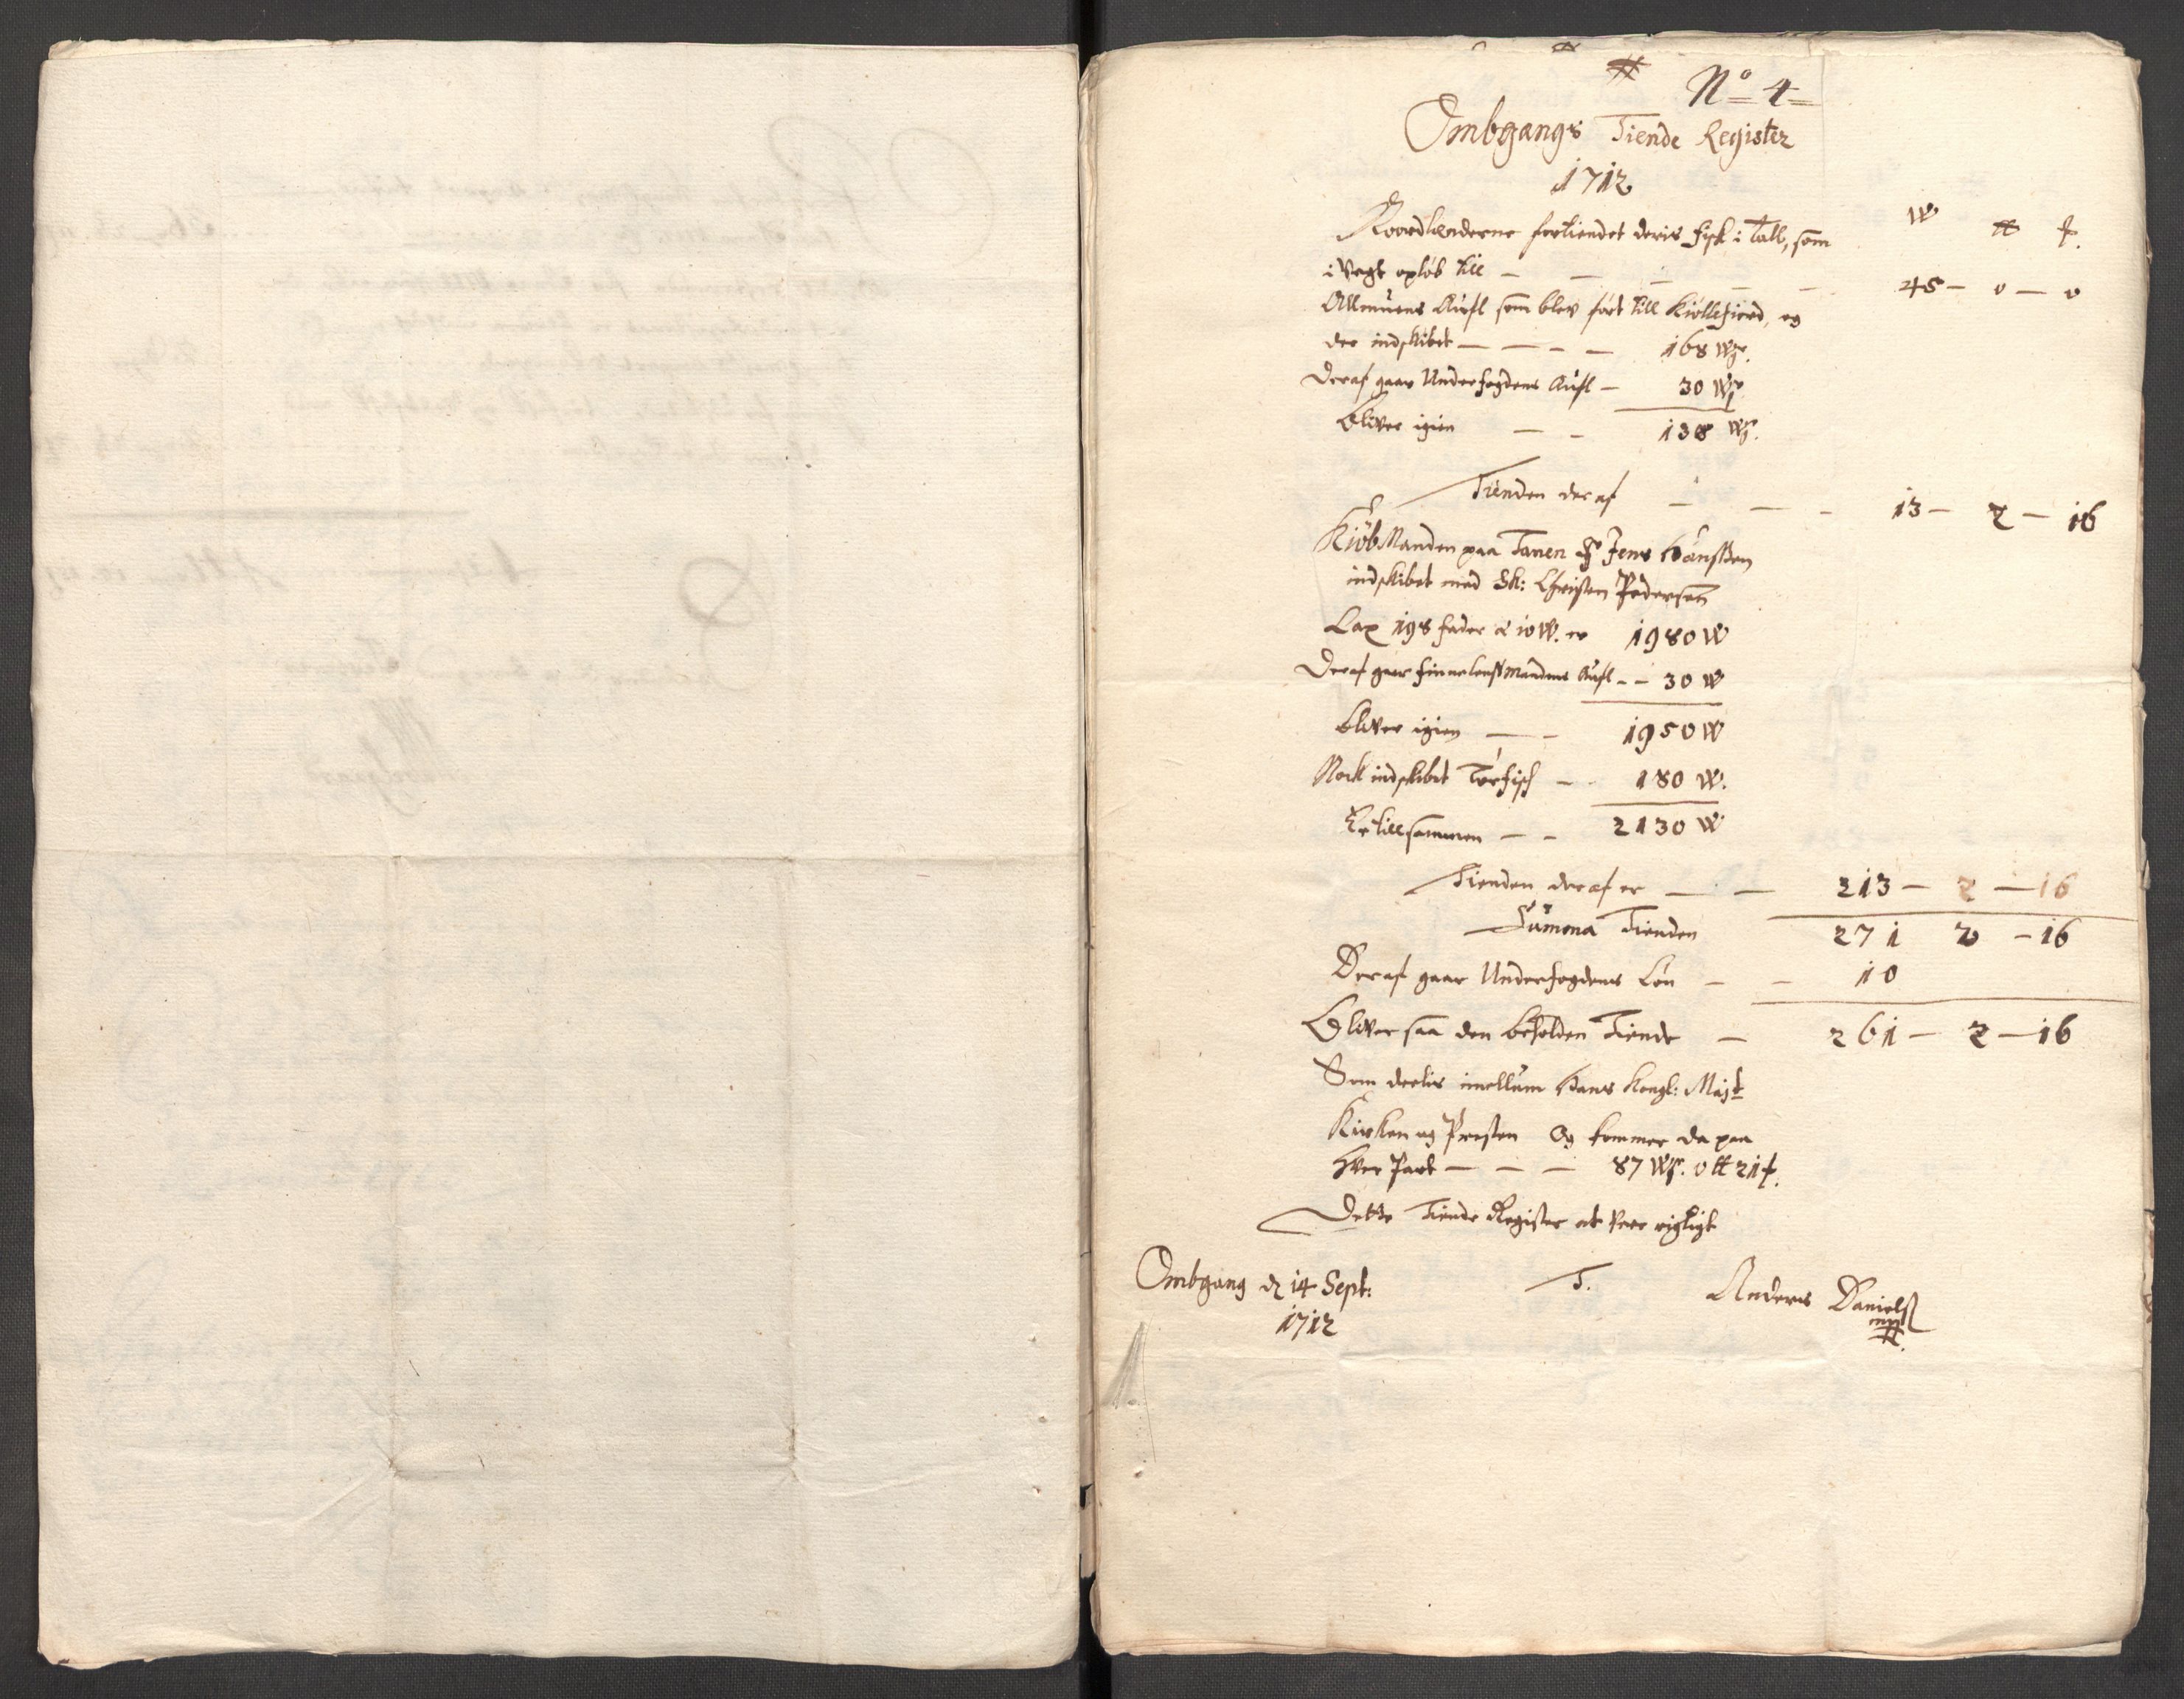 No 4
Ombgangs Tiende Register
1712
W ℔ ꝉ.
Noordlænderne fortiendet deris fisk i Tall, som
i Vegt opløb till — — — — 45 — 0 — 0
Allmuens Aufl som blev ført till Kiøllefiord, og
der indskibet — — — — 168 W.
Deraf gaar Underfogdens Aufl — 30 W
Bliver igien — — 138 W.
Tienden der af — — — 13 — 2 — 16
KiøbManden paa Tanen Sr Jens Hansßen
indskibet med Sk: Christen Pedersen
Lax 198 fader à 10 W. er 1980 W
Deraf gaar finnelensmandens Aufl — — 30 W
bliver igien — — 1950 W
Nock indskibet Tørfisch — 180 W.
Er tillsammen — — 2130 W
Tienden der af er — — 213 — 2 — 16
Summa Tienden 271 2 — 16
Deraf gaar Underfogdens Løn — — 10
Bliver saa den beholden Tiende — 261 — 2 — 16
Som deelis imellum Hans Kongl: Majt
Kirken og Presten Og kommer da paa
hver Part — — — 87 W. 0 ℔ 21 ꝉ.
Dette Tiende Register at vere rigtigt
Ombgang d 14 Sept: T. Anders Danielß
1712 mpp